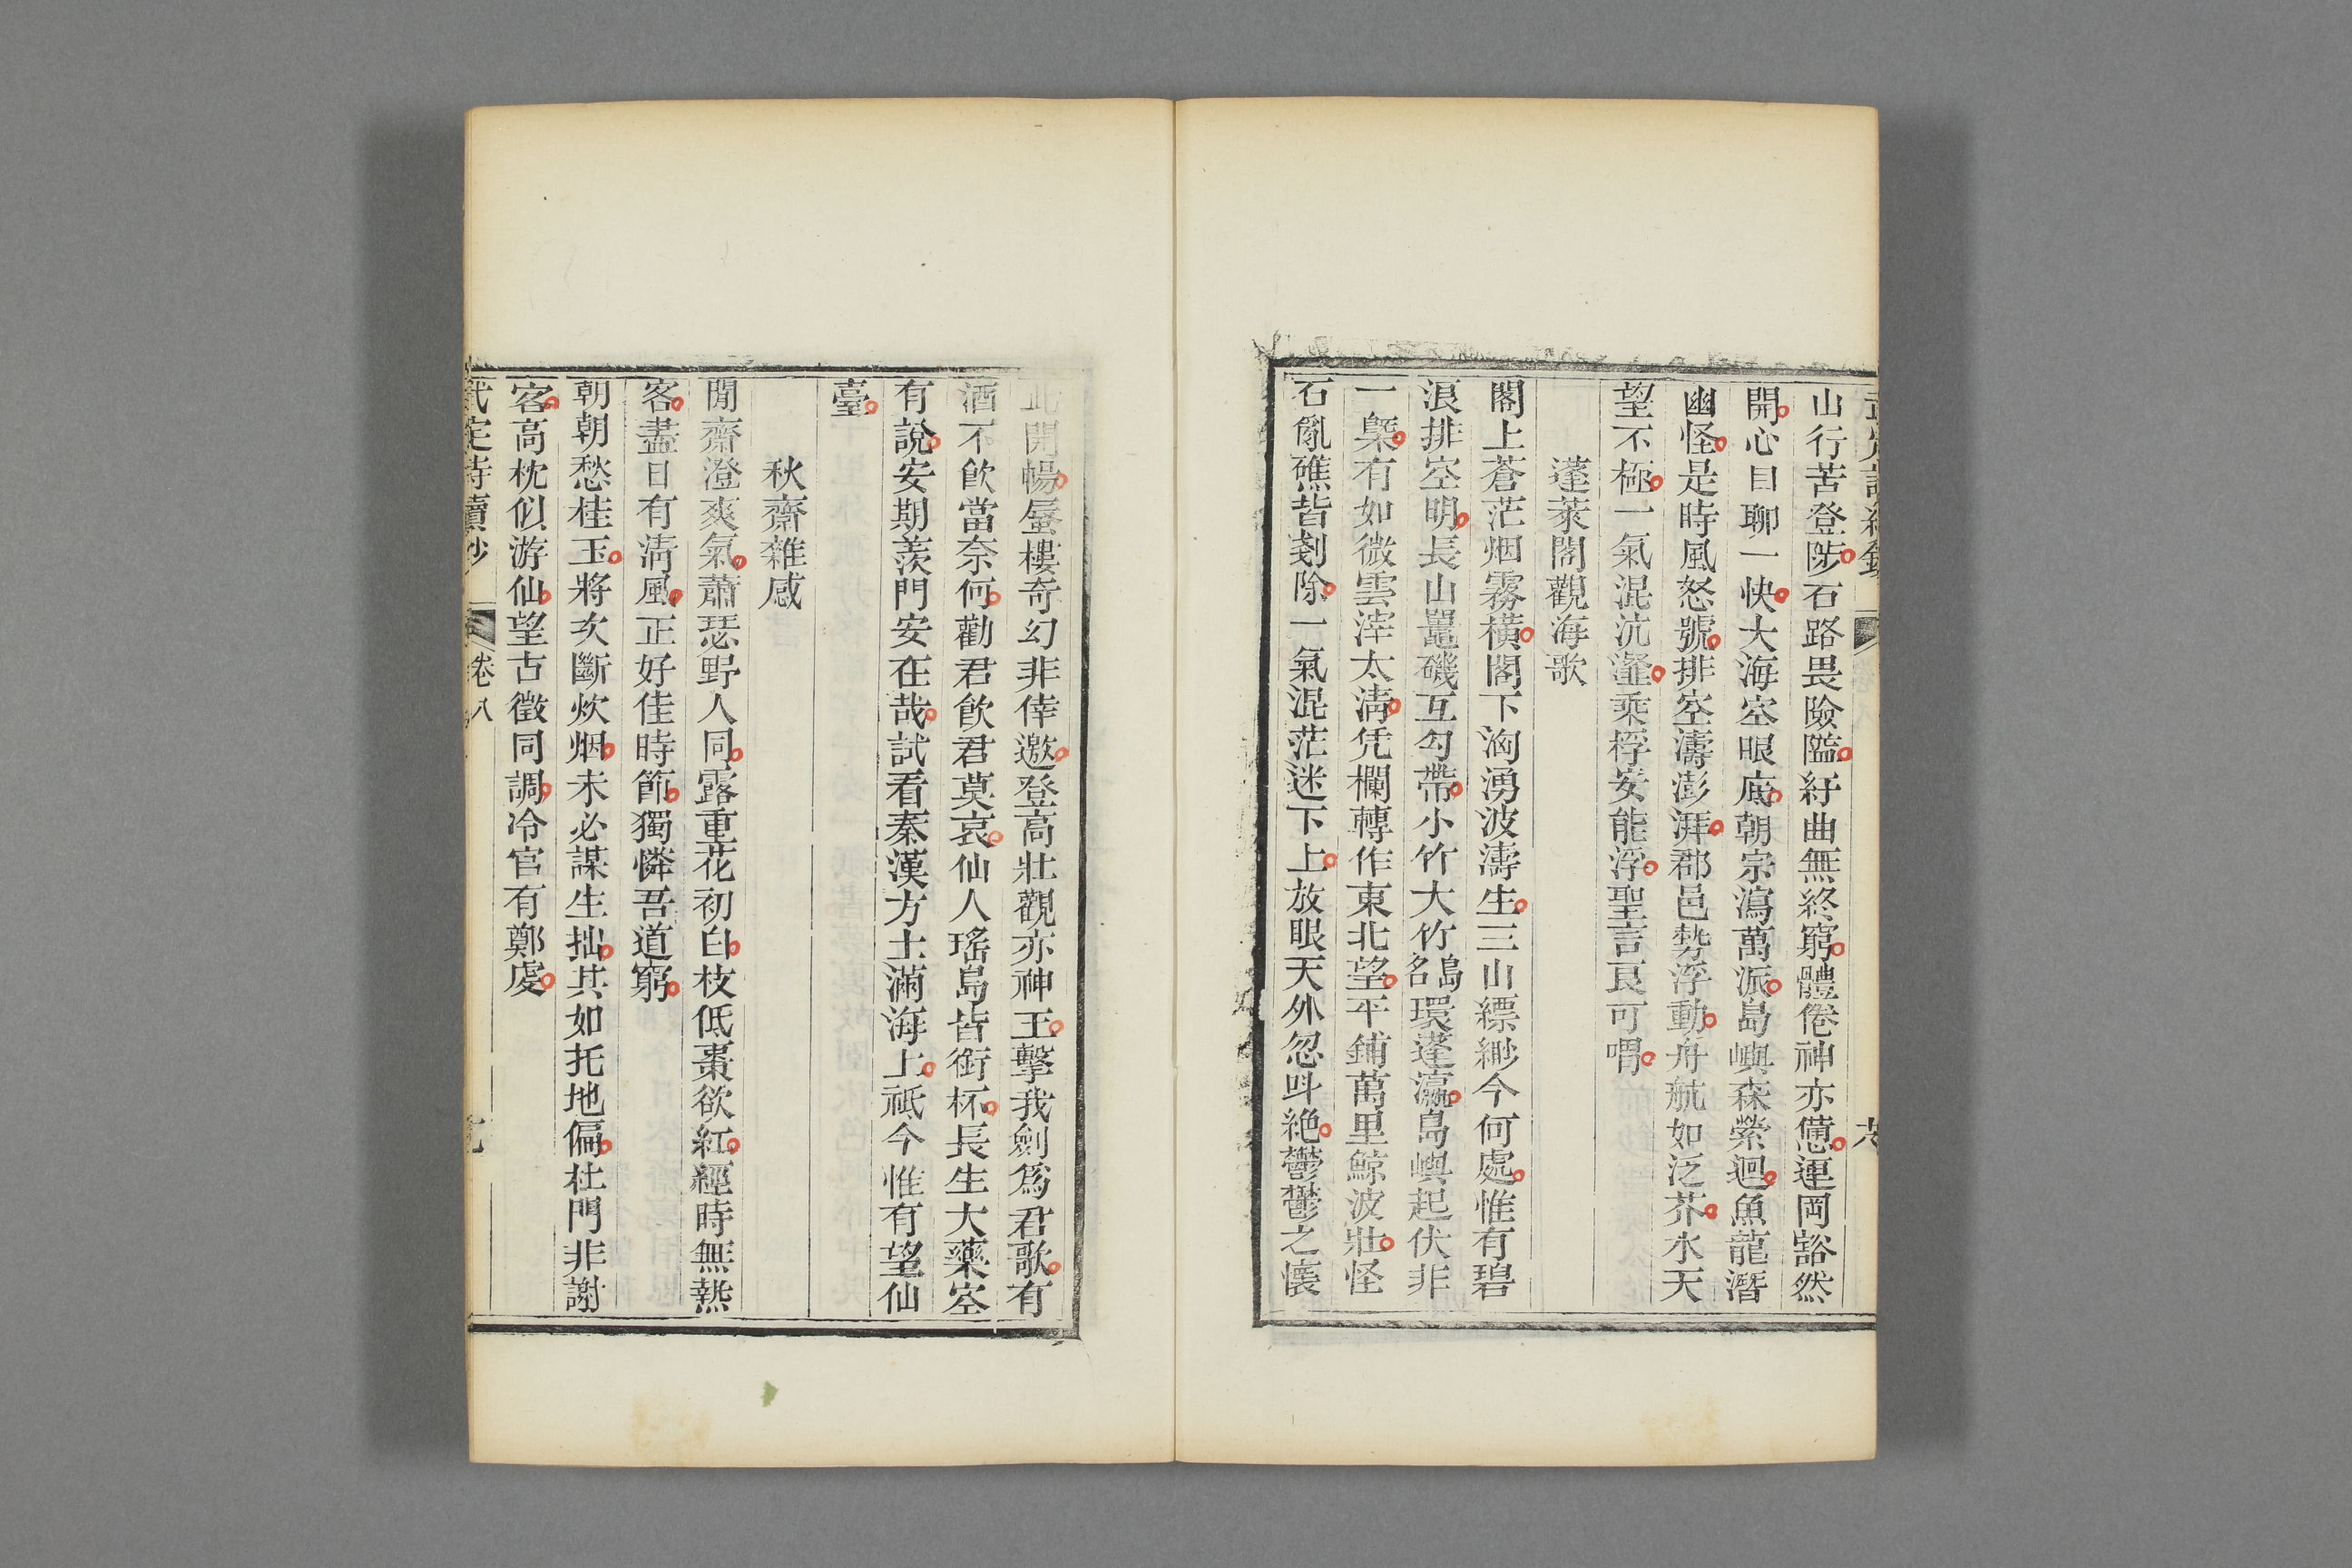 山行苦登陟石路畏險隘紆曲無終窮體倦神亦憊連岡豁然
開心目聊一快大海空眼底朝宗瀉萬派島嶼森縈迴魚龍潛
幽怪是時風怒號排空濤澎湃郡邑勢浮動舟航如泛芥水天
望不極一氣混沆瀣乘桴安能浮聖言良可喟
蓬萊閣觀海歌
閣上蒼茫烟霧橫閣下洶湧波濤生三山縹緲今何處惟有碧
浪排空明長山鼉磯互勾帶小竹大竹島名環蓬瀛島嶼起伏非
一槩有如微雲滓太淸凭欄轉作東北望平鋪萬里鯨波壯怪
石亂礁皆剗除一氣混茫迷下上放眼天外忽呌絶鬱鬱之懷
此開暢蜃樓奇幻非倖邀登高壯觀亦神王擊我劍爲君歌有
酒不飮當奈何勸君飮君莫哀仙人瑤島皆銜杯長生大藥空
有說安期羨門安在哉試看秦漢方士滿海上祗今惟有望仙
臺
秋齋雜感
閒齋澄爽氣蕭瑟野人同露重花初白枝低棗欲紅經時無熱
客盡日有淸風正好佳時節獨憐吾道窮
朝朝愁桂玉將次斷炊烟未必謀生拙其如托地偏杜門非謝
客高枕似游仙望古徵同調冷官有鄭虔
武定詩續鈔 卷八